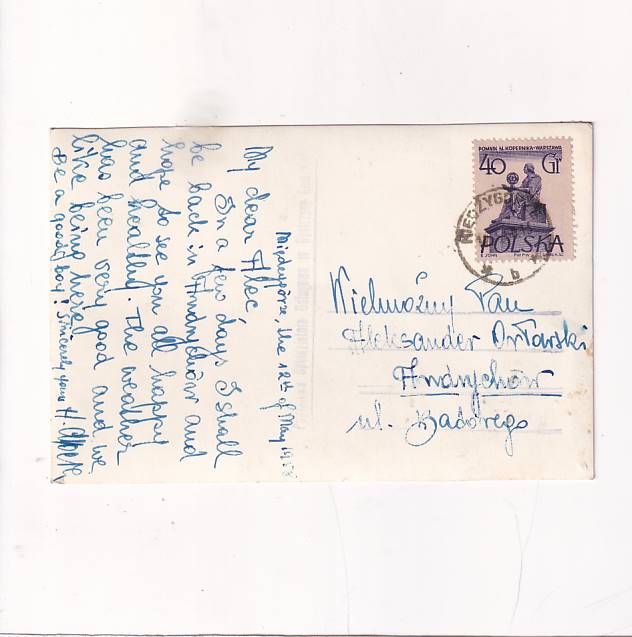 Międzygórze, the 12th of May 1958
My dear Alec,
In a few days I shall
be back in Andrychów and
hope to see you all happy
and healthy. The weather
has been very good and we
like being here.
Be a good boy! Sincerely yours H.
POMNIK M. KOPERNIKA-WARSZAWA
40 Gr
POLSKA
Wielmożny Pan
Aleksander Orlarski
Andrychów
ul. Batorego